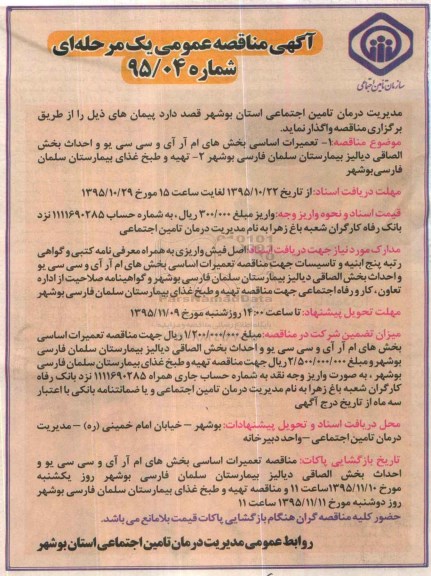 آگهی مناقصه عمومی یک مرحله‌ای
شماره ۹۵/۰۴
سازمان تأمین اجتماعی
مدیریت درمان تامین اجتماعی استان بوشهر قصد دارد پیمان های ذیل را از طریق
برگزاری مناقصه واگذار نماید.
موضوع مناقصه:۱- تعمیرات اساسی بخش های ام آر آی و سی سی یو و احداث بخش
الصاقی دیالیز بیمارستان سلمان فارسی بوشهر ۲- تهیه و طبخ غذای بیمارستان سلمان
فارسی بوشهر
مهلت دریافت اسناد: از تاریخ ۱۳۹۵/۱۰/۲۲ لغایت ساعت ۱۵ مورخ ۱۳۹۵/۱۰/۲۹
قیمت اسناد و نحوه واریز وجه: واریز مبلغ ۳۰۰/۰۰۰ ریال ، به شماره حساب ۱۱۱۱۶۹۰۲۸۵ نزد
بانک رفاه کارگران شعبه باغ زهرا به نام مدیریت درمان تامین اجتماعی
مدارک مورد نیاز جهت دریافت اسناد: اصل فیش واریزی به همراه معرفی نامه کتبی و گواهی
رتبه پنج ابنیه و تاسیسات جهت مناقصه تعمیرات اساسی بخش های ام آر آی و سی سی یو
و احداث بخش الصاقی دیالیز بیمارستان سلمان فارسی بوشهر و گواهینامه صلاحیت از اداره
تعاون ، کار و رفاه اجتماعی جهت مناقصه تهیه و طبخ غذای بیمارستان سلمان فارسی بوشهر
ParsNamadData
مهلت تحویل پیشنهاد: تا ساعت ۱۴:۰۰ روز شنبه مورخ ۱۳۹۵/۱۱/۰۹
میزان تضمین شرکت در مناقصه: مبلغ ۱/۲۰۰/۰۰۰/۰۰۰ ریال جهت مناقصه تعمیرات اساسی
بخش های ام آر آی و سی سی یو و احداث بخش الصاقی دیالیز بیمارستان سلمان فارسی
بوشهر و مبلغ ۲/۵۰۰/۰۰۰/۰۰۰ ریال جهت مناقصه تهیه و طبخ غذای بیمارستان سلمان فارسی
بوشهر ، به صورت واریز وجه نقد به شماره حساب جاری همراه ۱۱۱۱۶۹۰۲۸۵ نزد بانک رفاه
کارگران شعبه باغ زهرا به نام مدیریت درمان تامین اجتماعی و یا ضمانتنامه بانکی با اعتبار
سه ماه از تاریخ درج آگهی
محل دریافت اسناد و تحویل پیشنهادات: بوشهر – خیابان امام خمینی (ره) – مدیریت
درمان تامین اجتماعی –واحد دبیرخانه
تاریخ بازگشایی پاکات: مناقصه تعمیرات اساسی بخش های ام آر آی و سی سی یو و
احداث بخش الصاقی دیالیز بیمارستان سلمان فارسی بوشهر روز یکشنبه
مورخ ۱۳۹۵/۱۱/۱۰ ساعت ۱۱ و مناقصه تهیه و طبخ غذای بیمارستان سلمان فارسی بوشهر
روز دوشنبه مورخ ۱۳۹۵/۱۱/۱۱ ساعت ۱۱
حضور کلیه مناقصه گران هنگام بازگشایی پاکات قیمت بلامانع می باشد.
روابط عمومی مدیریت درمان تامین اجتماعی استان بوشهر